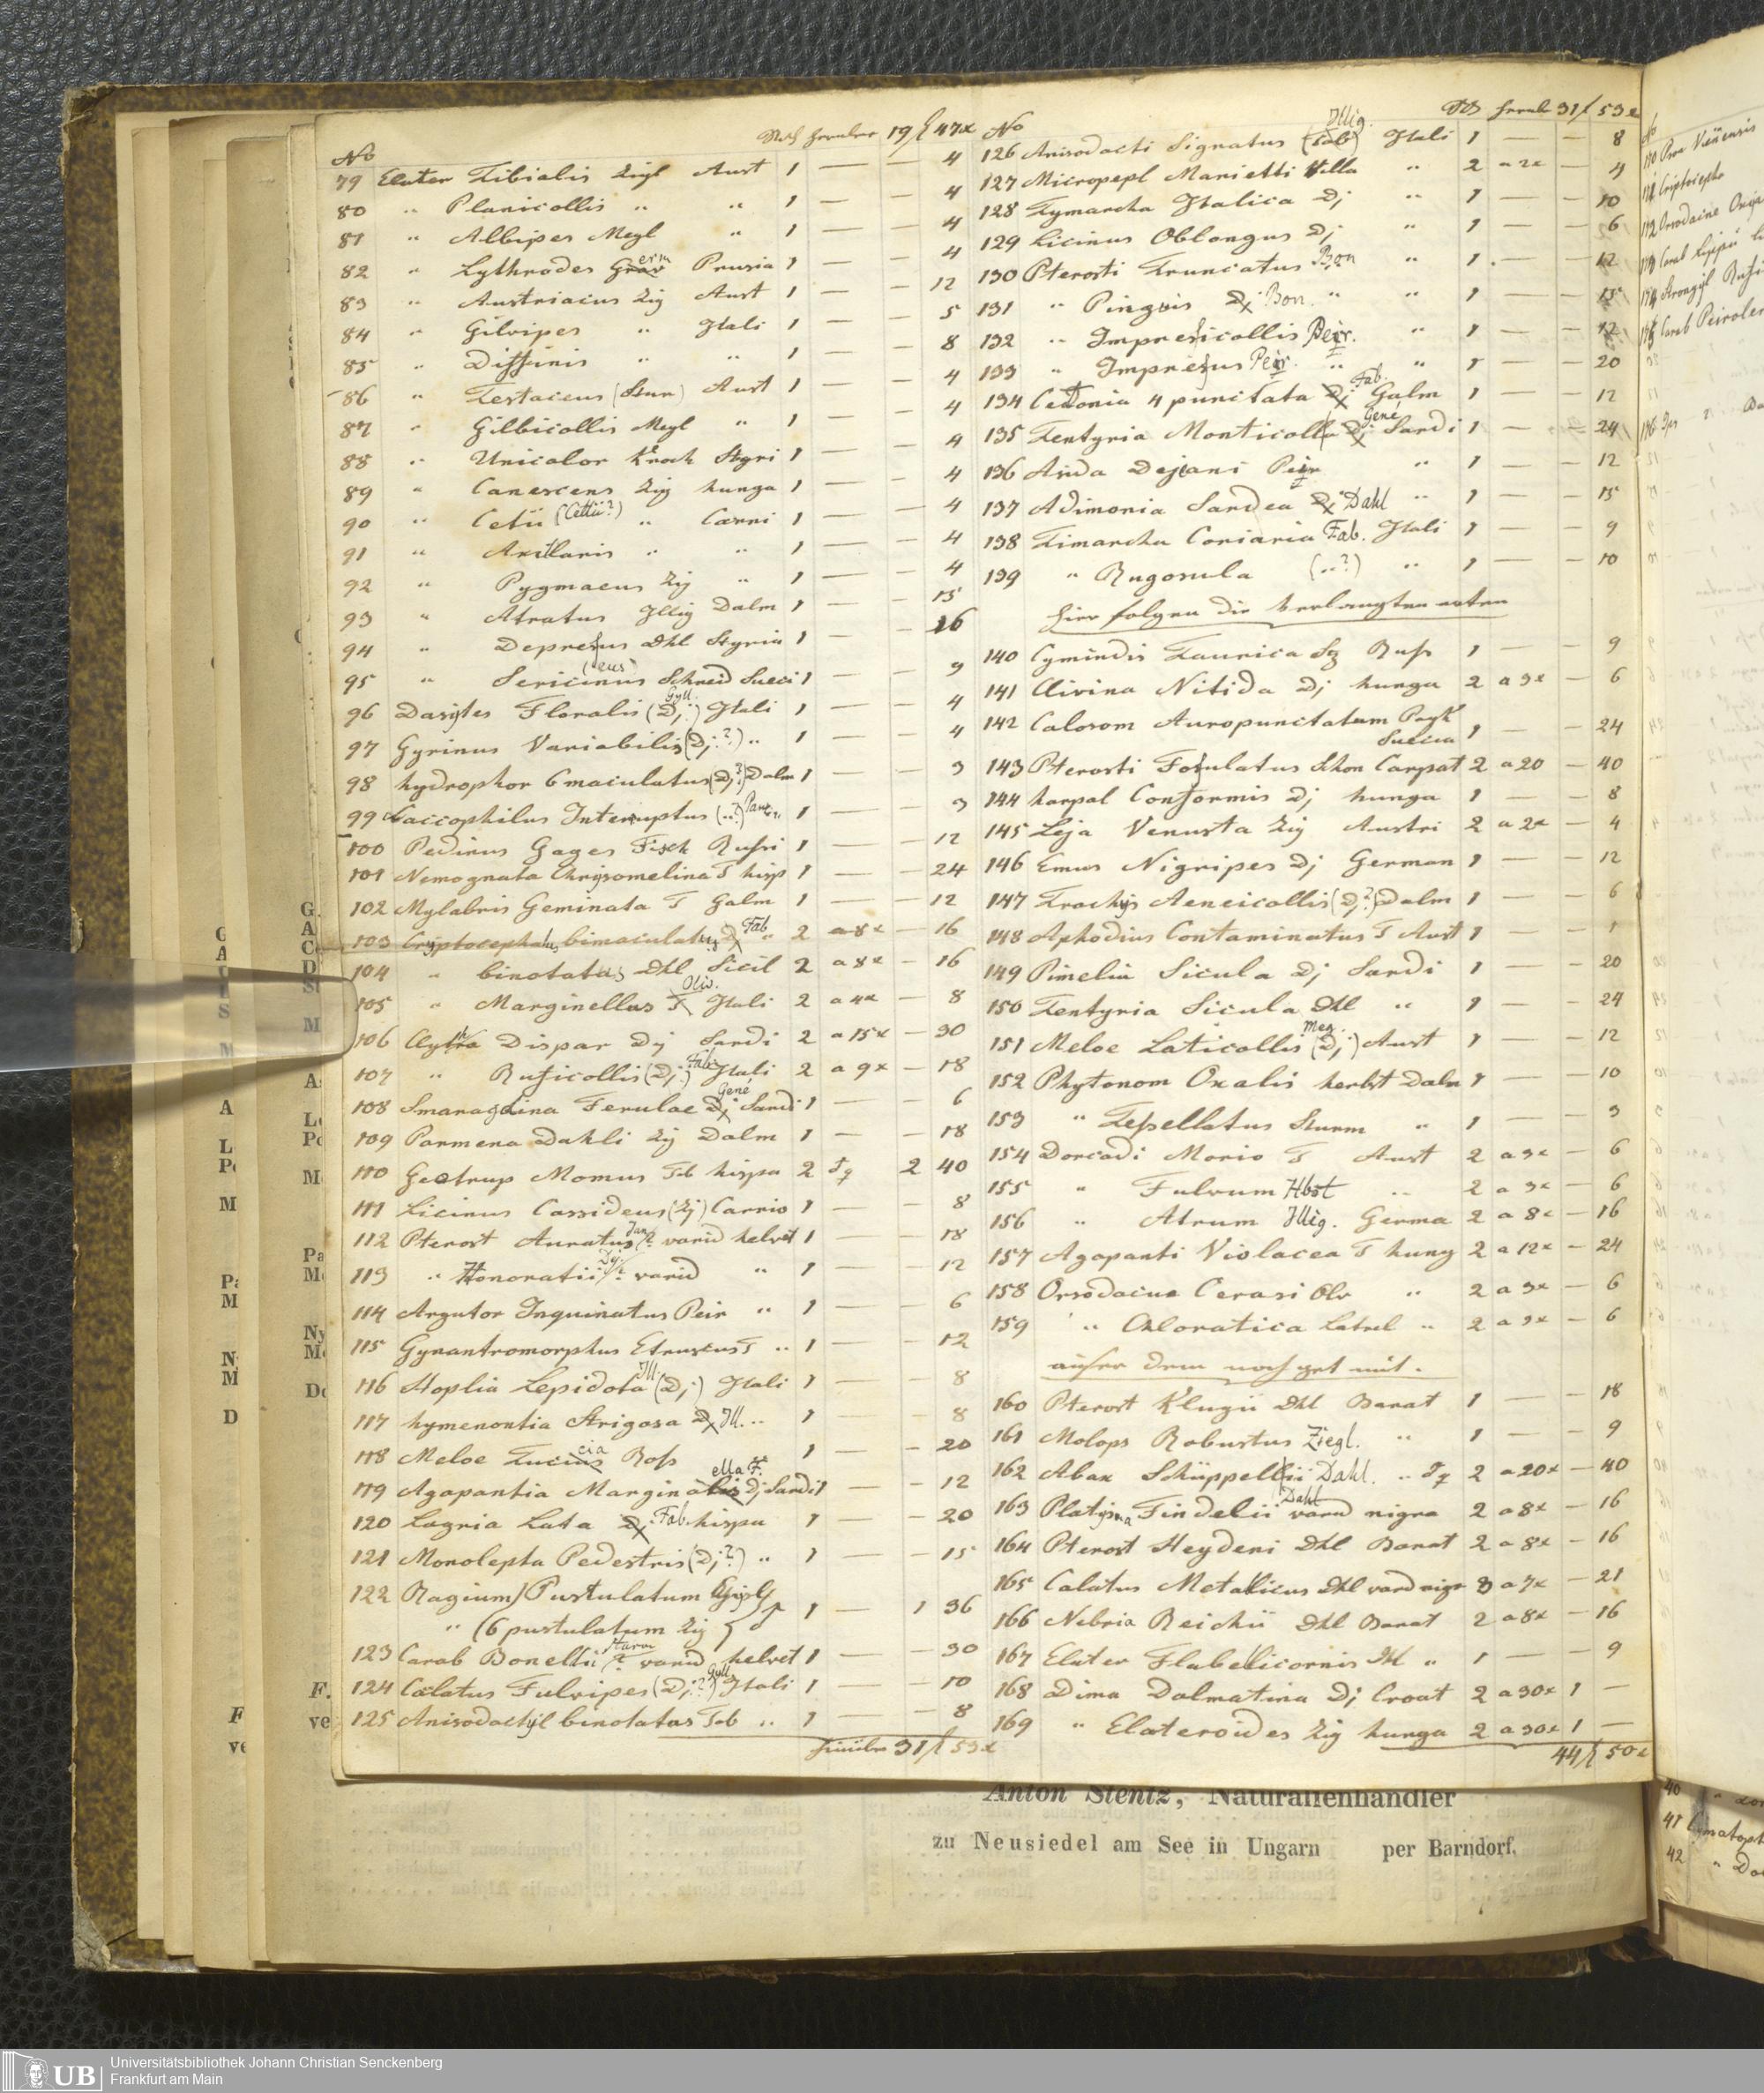 No
79 Elater Tibialis Zigl Aust 1 — — 4
80 " Planicollis " " 1 — — 4
81 " Albipes Megl " 1 — — 4
82 " Lythrodes Germ Prusia 1 — — 4
83 " Austriacus Zig Aust 1 — — 12
84 " Gilvipes " Itali 1 — — 5
85 " Diffinis " " 1 — — 8
86 " Testaceus (Stur) Aust 1 — — 4
87 " Gilbicollis Megl " 1 — — 4
88 " Unicolor Kroch Styri 1 — — 4
89 " Canescens Zig hunga 1 — — 4
90 " Cetii (Cettii?) " Carni 1 — — 4
91 " Axillaris " " 1 — — 4
92 " Pygmaeus Zig " 1 — — 4
93 " Atratus Illig Dalm 1 — — 15
94 " Depressus Dhl Styria 1 — — 16
95 " Sericinus (eus) Schneid Sueci 1 — — 9
96 Dasytes Floralis (Dj.) Gyll. Itali 1 — — 4
97 Gyrinus Variabilis (Dj.?) " 1 — — 4
98 hydrophor 6maculatus (Dj?) Dalm 1 — — 3
99 Laccophilus Interruptus (..?) Panz. " 1 — — 3
100 Pedinus Gages Fisch Russi 1 — — 12
101 Nemognata Chrysomelina T hisp 1 — — 24
102 Mylabris Geminata T Galm 1 — — 12
103 Cryptocephalus bimaculatus Dj Fab " 2 a 8x — 16
104 " binotatus Dhl Sicil 2 a 8x — 16
105 " Marginellus T Oliv. Itali 2 a 4x — 8
106 Clythra Dispar Dj Sardi 2 a 15x — 30
107 " Ruficollis (Dj.) Fab. Itali 2 a 9x — 18
108 Smaragdina Ferulae Dj Gené Sardi 1 — — 6
109 Parmena Dahli Zig Dalm 1 — — 18
110 Geotrup Momus Fab hispa 2 ♂♀ 2 40
111 Licinus Cassideus (Zj) Carnio 1 — — 8
112 Pterost Auratus varid helvet 1 — — 18
113 " Honoratii Dj varid " 1 — — 12
114 Argutor Inquinatus Peir " 1 — — 6
115 Gynantromorphus Etruscus T " 1 — — 12
116 Hoplia Lepidota Ill (Dj) Itali 1 — — 8
117 hymenontia Strigosa Dj Ill. " 1 — — 8
118 Meloe Tucius cia Ross 1 — — 20
119 Agapantia Marginalis ella F. Dj Sardi 1 — — 12
120 Lagria Lata Dj Fab. hispa 1 — — 20
121 Monolepta Pedestris (Dj?) " 1 — — 15
122 Ragium Pustulatum
" (6 pustulatum Zig } 1 — 1 36
123 Carab Bonellii varid helvet 1 — — 30
124 Calatus Fulvipes (Dj?) Gyll Itali 1 — — 10
125 Anisodactyl binotatus Fab " 1 — — 8
31 f 53x
19 f 47x
No
31 f 53x
126 Anisodacti Signatus (Fab) Illig. Itali 1 — — 8
127 Micropepl Marietti Villa " 2 a 2x — 4
128 Tymarcha Italica Dj " 1 — — 10
129 Licinus Oblongus Dj " 1 — — 6
130 Pterosti Truncatus Bon " 1 — — 12
131 " Pinguis Dj Bon. " " 1 — — 15
132 " Impressicollis Peir. " 1 — — 12
133 " Impressus Peir. " " 1 — — 20
134 Cetonia 4 punctata Dj Fab. Galm 1 — — 12
135 Tentyria Monticoll Dj Gené Sardi 1 — — 24
136 Asida Dejeani Peir " 1 — — 12
137 Adimonia Sardea Dj Dahl " 1 — — 15
138 Timarcha Coriaria Fab. Itali 1 — — 9
139 " Rugosula (..?) " 1 — — 10
hier folgen die verlangten arten
140 Cymindis Taurica Sz Russ 1 — — 9
141 Clivina Nitida Dj hunga 2 a 3x — 6
142 Calosom Auropunctatum Payk
Suecia 1 — — 24
143 Pterosti Fossulatus Schon Carpat 2 a 20 — 40
144 harpal Conformis Dj hunga 1 — — 8
145 Leja Venusta Zig Austri 2 a 2x — 4
146 Emus Nigripes Dj German 1 — — 12
147 Trachys Aeneicollis (Dj?) Dalm 1 — — 6
148 Aphodius Contaminatus T Aust 1 — — 1
149 Pimelia Sicula Dj Sardi 1 — — 20
150 Tentyria Sicula Dhl " 1 — — 24
151 Meloe Laticollis Meg. (Dj) Aust 1 — — 12
152 Phytonom Oxalis herbst Dalm 1 — — 10
153 " Tessellatus Sturm " 1 — — 3
154 Dorcadi Morio T Aust 2 a 3x — 6
155 " Fulvum Hbst " 2 a 3x — 6
156 " Atrum Illig. Germa 2 a 8x — 16
157 Agapanti Violacea T hung 2 a 12x — 24
158 Orsodacna Cerasi Olv " 2 a 3x — 6
159 " Chloratica Latrel " 2 a 3x — 6
auser dem noch get mit.
160 Pterost Klugii Dhl Banat 1 — — 18
161 Molops Robustus Ziegl. " 1 — — 9
162 Abax Schüppellii Dahl. " ♂♀ 2 a 20x — 40
163 Platysma Findelii Dahl varid nigra 2 a 8x — 16
164 Pterost Heydeni Dhl Banat 2 a 8x — 16
165 Calatus Metallicus Dhl varid nigr 3 a 7x — 21
166 Nebria Reichii Dhl Banat 2 a 8x — 16
167 Elater Flabellicornis Dhl " 1 — — 9
168 Dima Dalmatina Dj Croat 2 a 30x 1 —
169 " Elateroides Zig hunga 2 a 30x 1 —
44 f 50x
Anton Stentz, Naturalienhändler
zu Neusiedel am See in Ungarn per Barndorf.
UB Universitätsbibliothek Johann Christian Senckenberg
Frankfurt am Main